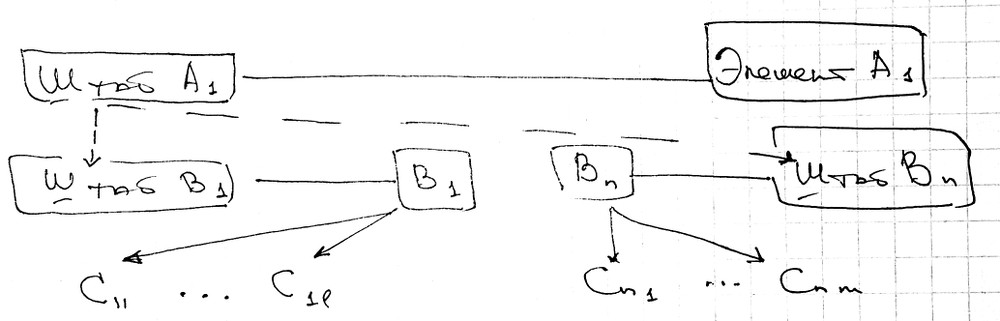 Штаб A₁ Элемент A₁
Штаб B₁ B₁ Bₙ Штаб Bₙ
C₁₁ ... C₁ₑ Cₙ₁ ... Cₙₘ